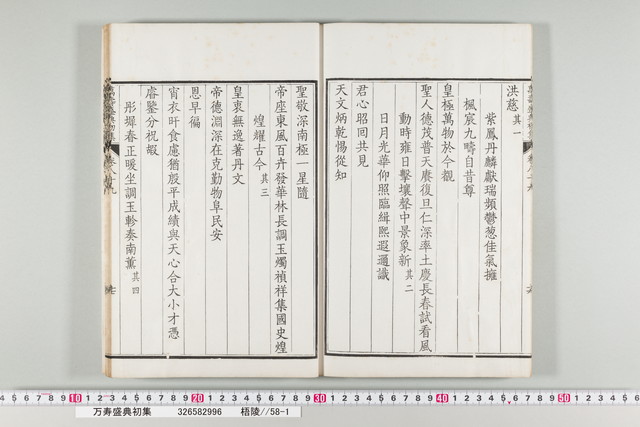 洪慈其一
紫鳳丹麟獻瑞頻鬱葱佳氣擁
楓宸九疇自昔尊
皇極萬物於今觀
聖人德茂普天賡復旦仁深率土慶長春試看風
動時雍日擊壤聲中景象新其二
日月光華仰照臨緝熙遐邇識
君心昭回共見
天文炳乾惕從知
聖敬深南極一星隨
帝座東風百卉發華林長調玉燭禎祥集國史煌
煌耀古今其三
皇衷無逸著丹文
帝德淵深在克勤物阜民安
恩早徧
宵衣旰食慮猶殷平成績與天心合大小才憑
睿鑒分祝嘏
彤墀春正暖坐調玉軫奏南薰其四
万寿盛典初集 326582996 梧陵//58-1